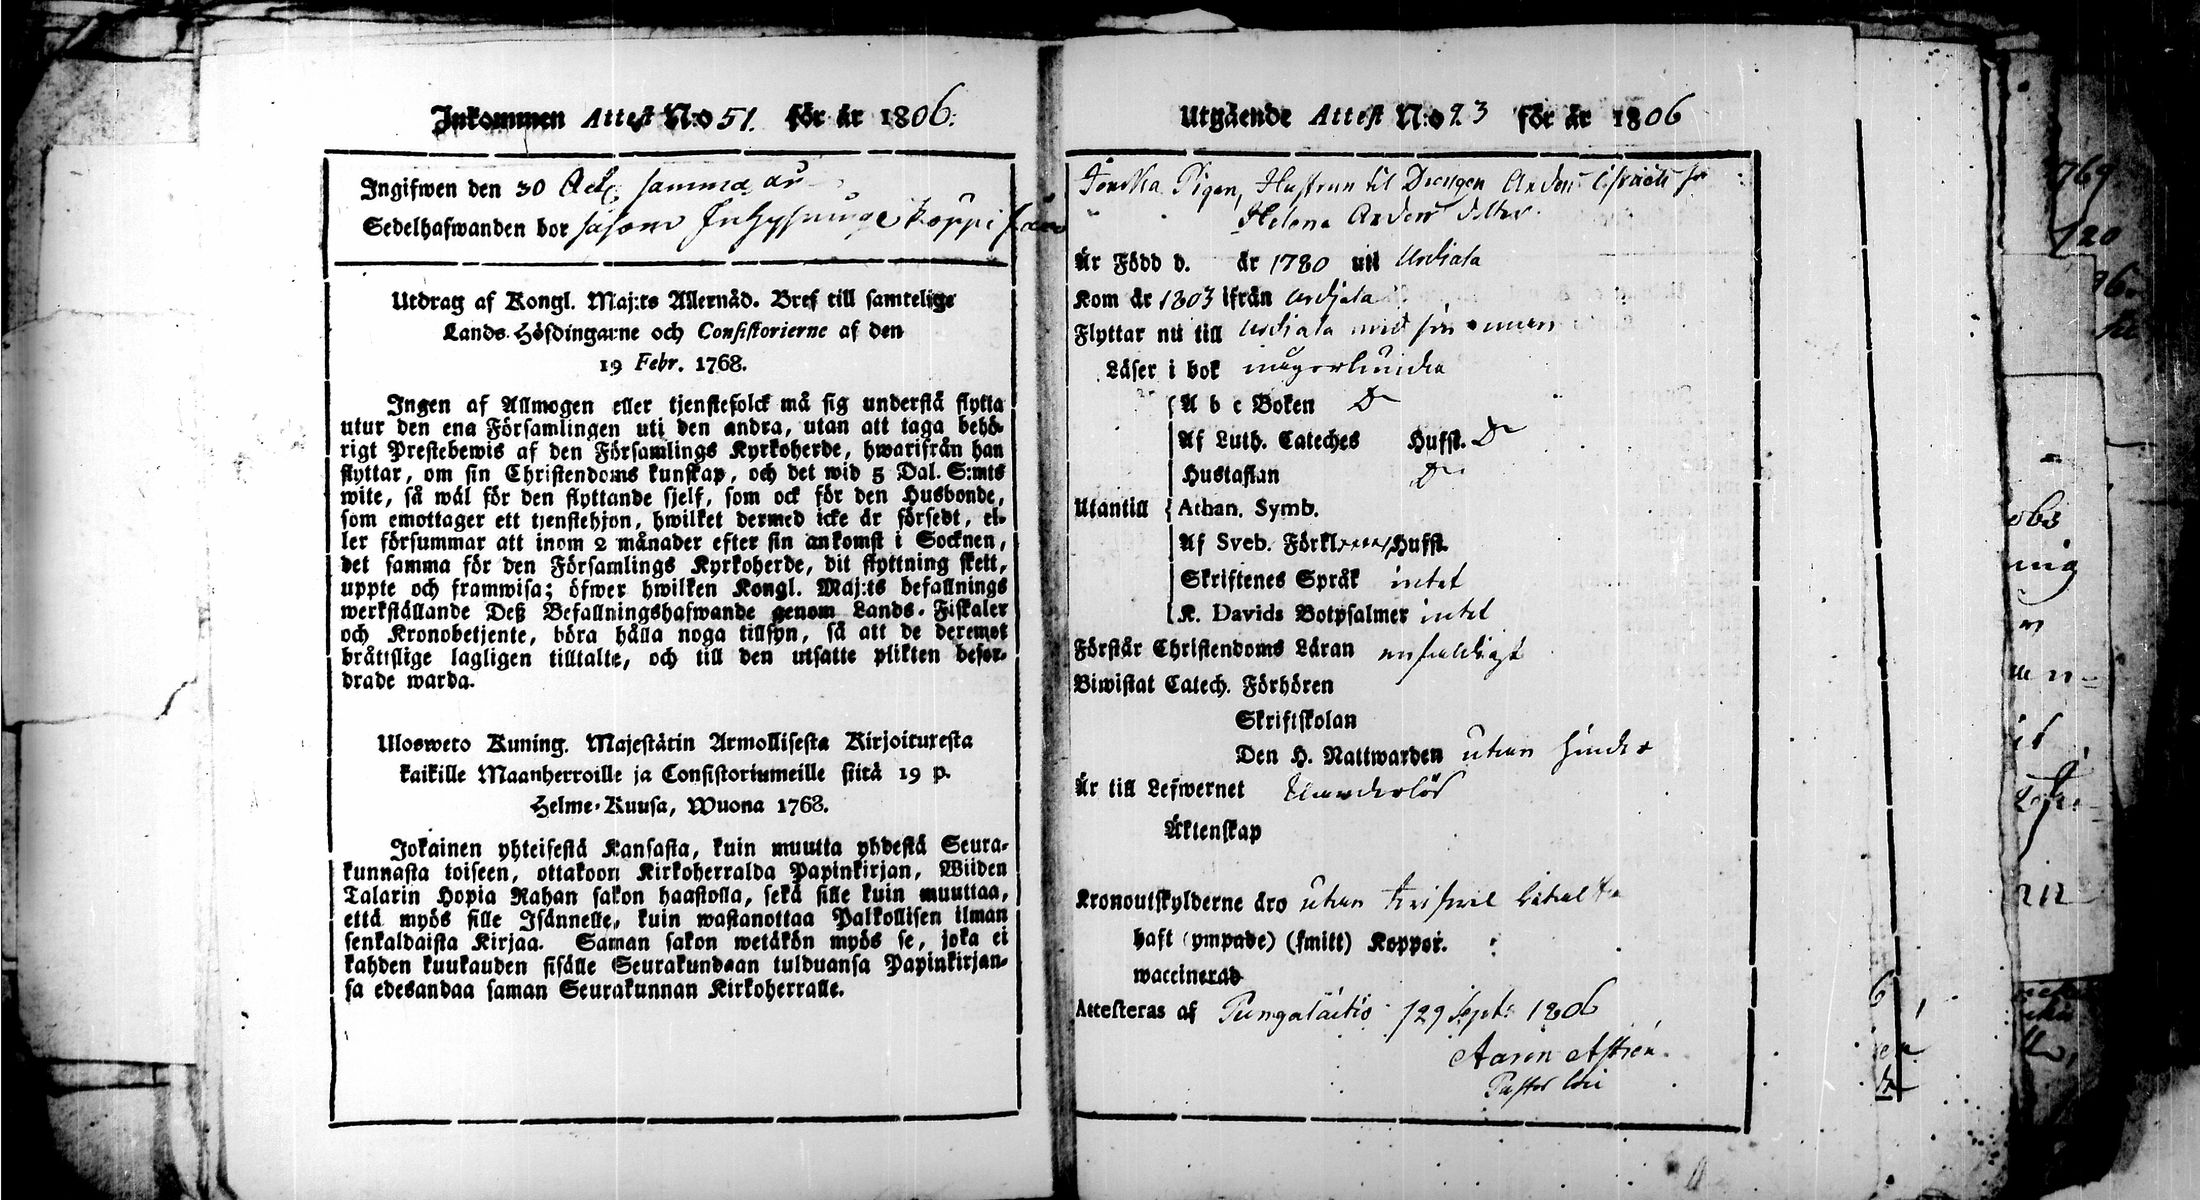 Inkommen Attest N:o 51. för år 1806.
Ingifwen den 30 Oct. samma år
Sedelhafwanden bor såsom
Utdrag af Kongl. Maj:ts Allernåd. Bref till samtelige
Lands-Höfdingarne och Consistorierne af den
19 Febr. 1768.
Ingen af Allmogen eller tjenstefolck må sig understå flytta
utur den ena Församlingen uti den andra, utan att taga behö-
rigt Prestebewis af den Församlings Kyrkoherde, hwarifrån han
flyttar, om sin Christendoms kunskap, och det wid 5 Dal. S:mts
wite, så wäl för den flyttande sjelf, som ock för den Husbonde,
som emottager ett tjenstehjon, hwilket dermed icke är försedt, el-
ler försummar att inom 2 månader efter sin ankomst i Socknen,
det samma för den Församlings Kyrkoherde, dit flyttning skett,
uppte och framwisa; öfwer hwilken Kongl. Maj:ts befallnings
werkställande Deß Befallningshafwande genom Lands-Fiskaler
och Kronobetjente, böra hålla noga tillsyn, så att de deremot
bråttslige lagligen tilltalte, och till den utsatte plikten befor-
drade warda.
Ulosweto Kuning. Majestätin Armollisesta Kirjoituxesta
kaikille Maanherroille ja Consistoriumeille siitä 19 p.
Helme-Kuusa, Wuona 1768.
Jokainen yhteisestä Kansasta, kuin muutta yhdestä Seura-
kunnasta toiseen, ottakoon Kirkoherralda Papinkirjan, Wiiden
Talarin Hopia Rahan sakon haastolla, sekä sille kuin muuttaa,
että myös sille Isännelle, kuin wastanottaa Palkollisen ilman
senkaldaista Kirjaa. Saman sakon wetäkön myös se, joka ei
kahden kuukauden sisälle Seurakundaan tulduansa Papinkirjan-
sa edesandaa saman Seurakunnan Kirkoherralle.
Utgående Attest N:o 23 för år 1806
Pigan, Hustrun til Drengen Anders
Helena Anders dotter.
Är Född d. år 1780 uti Urdiala
Kom år 1803 ifrån Urdjala
Flyttar nu till Urdiala med sin mann
Läser i bok någorlunda
A b c Boken D
Af Luth. Cateches Hufst. D
Hustaflan D
Utantill Athan. Symb.
Af Sveb. Förkl. Hufst.
Skriftenes Språk intet
K. Davids Botpsalmer intet
Förstår Christendoms Läran enfaldigt
Biwistat Catech. Förhören
Skriftskolan
Den H. Nattwarden utan hinder
Är till Lefwernet
Äktenskap
Kronoutskylderne äro utan
haft (ympade) (smitt) Koppor.
waccinerad
Attesteras af Pungalaitio 29 Sept. 1806
Aaron
Pastor